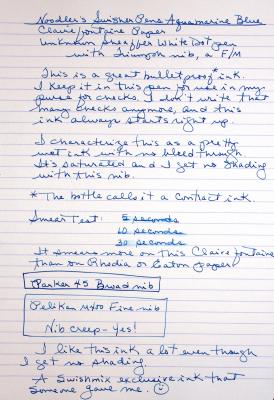 Noodler's Swisher Pens Aquamarine Blue
Clairefontaine Paper
Unknown Sheaffer White Dot pen
with Triumph nib, a F/M
This is a great bulletproof* ink.
I keep it in this pen for use in my
purse for checks. I don't write that
many checks anymore, and this
ink always starts right up.
I characterize this as a pretty
wet ink with no bleedthrough.
It's saturated and I get no shading
with this nib.
* The bottle calls it a contract ink.
Smear Test: 5 seconds
10 seconds
30 seconds
It smears more on this Clairefontaine
than on Rhodia or Eaton paper.
Parker 45 Broad nib
Pelikan M400 Fine nib
Nib creep - yes!
I like this ink a lot even though
I get no shading.
A Swishmix exclusive ink that
someone gave me.